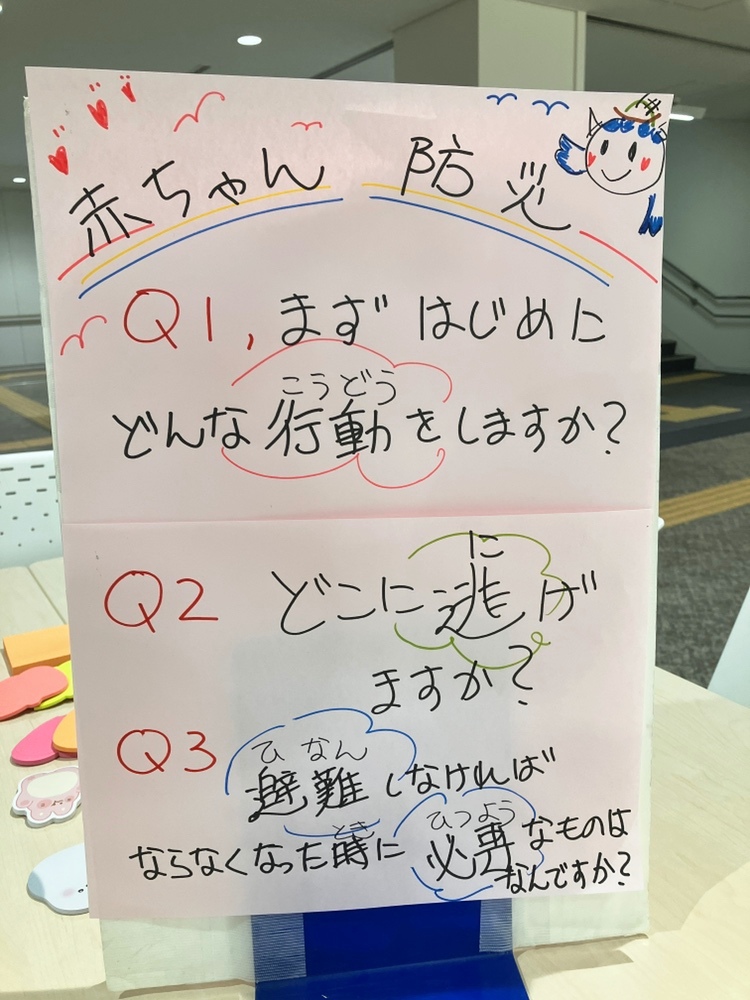 赤ちゃん 防災
Q1, まず はじめに
こうどう
どんな行動をしますか?
に
Q2 どこに逃げ
ますか?
ひなん
Q3 避難しなければ
とき ひつよう
ならなくなった時に必要なものは
なんですか?